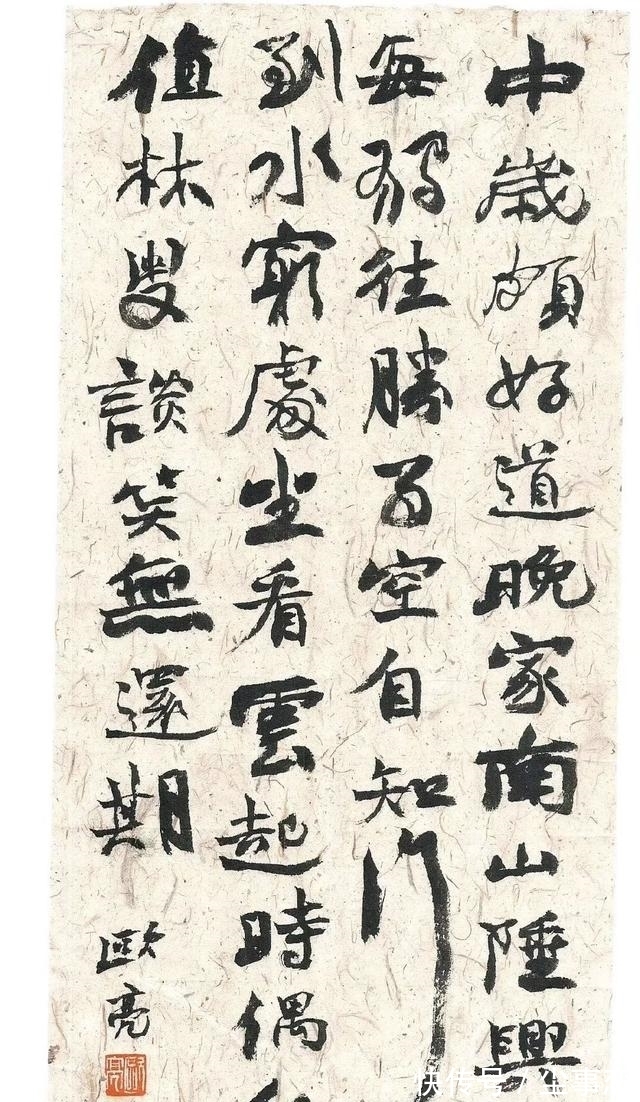 中歲頗好道晚家南山陲興
每獨往勝事空自知行
到水窮處坐看雲起時偶
值林叟談笑無還期
歐亮
快传号